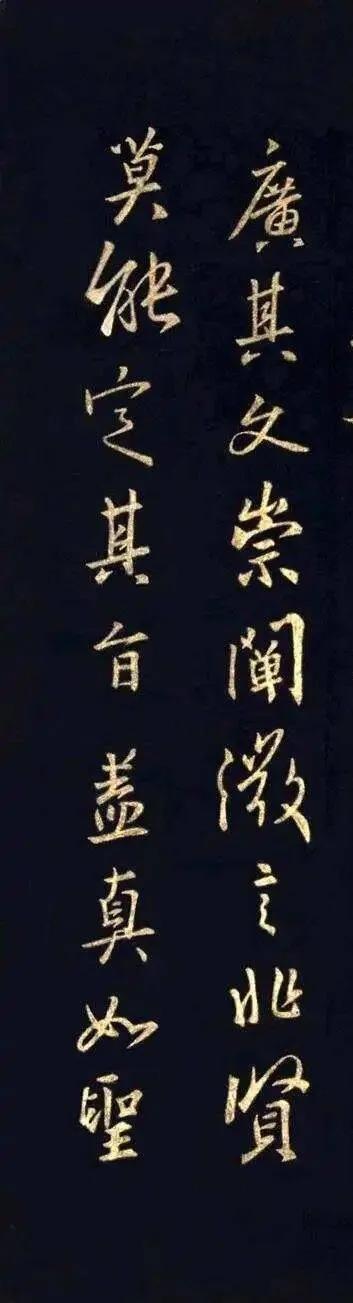 廣其文崇闡微言非賢
莫能定其旨蓋真如聖